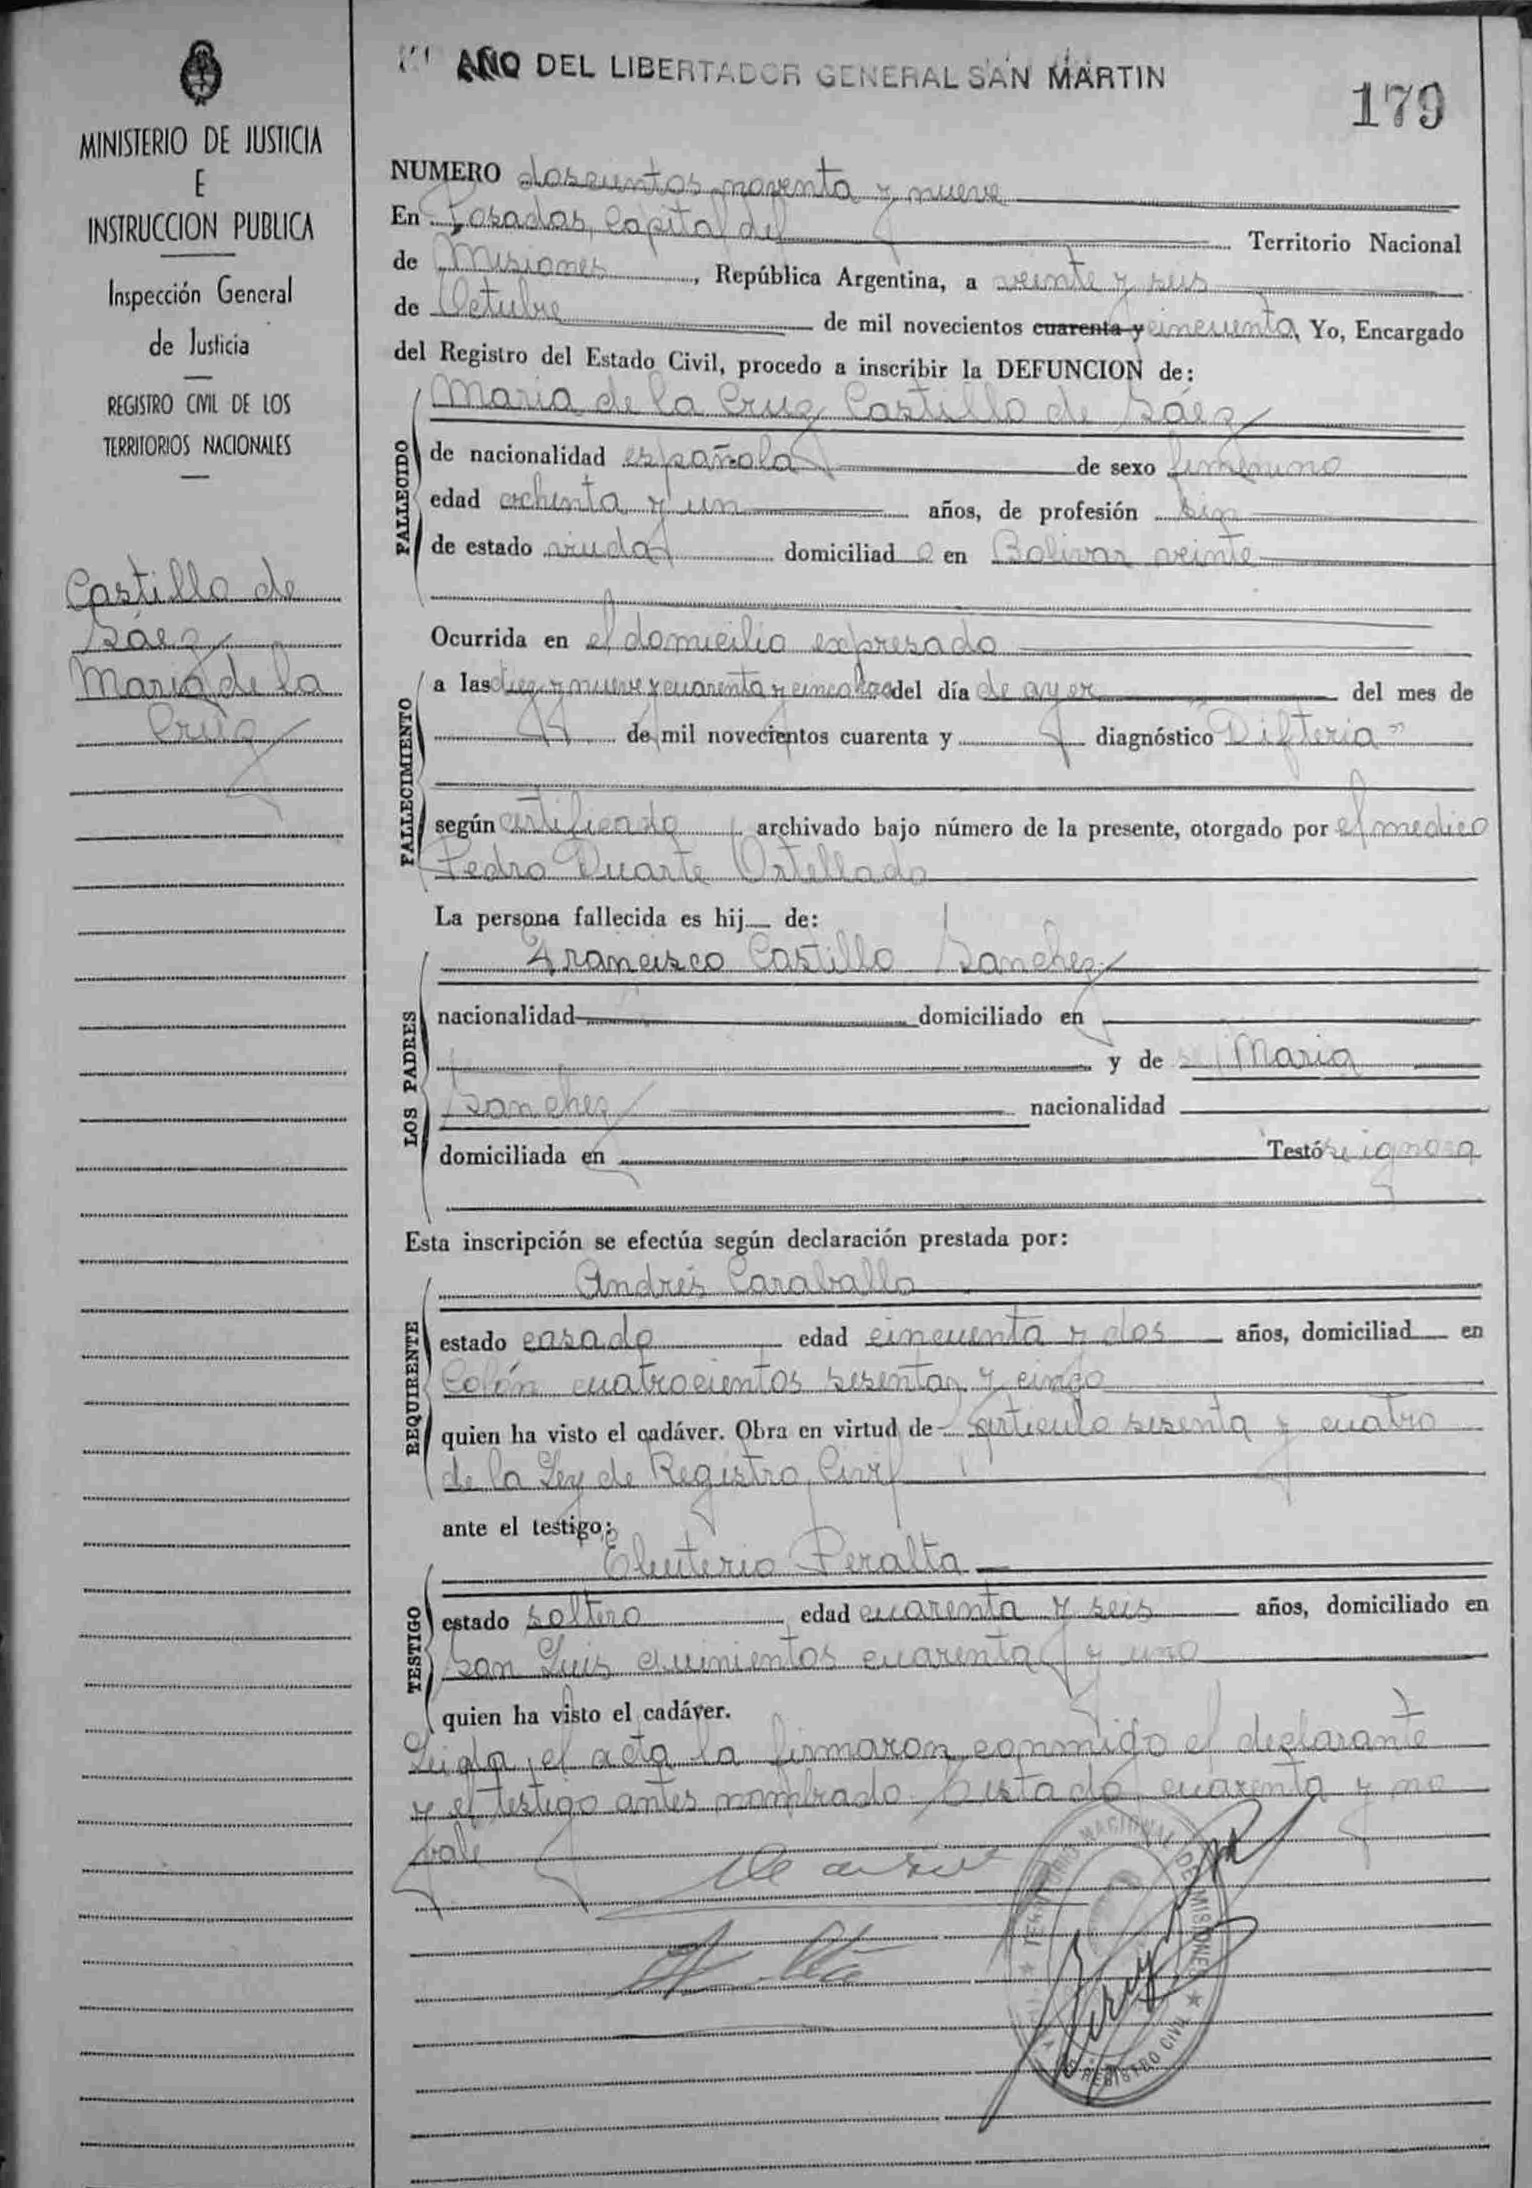 MINISTERIO DE JUSTICIA
E
INSTRUCCION PUBLICA
Inspección General
de Justicia
REGISTRO CIVIL DE LOS
TERRITORIOS NACIONALES
Castillo de
Sáez
María de la
Cruz
AÑO DEL LIBERTADOR GENERAL SAN MARTIN
179
NUMERO doscientos noventa y nueve
En Posadas, Capital del Territorio Nacional
de Misiones, República Argentina, a veinte y seis
de Octubre de mil novecientos cuarenta y cincuenta, Yo, Encargado
del Registro del Estado Civil, procedo a inscribir la DEFUNCION de:
FALLECIDO
Maria de la Cruz Castillo de Sáez
de nacionalidad española de sexo femenino
edad ochenta y un años, de profesión sin
de estado viuda domiciliad a en Bolivar veinte
Ocurrida en el domicilio expresado
FALLECIMIENTO
a las diez y nueve y cuarenta y cinco hs del día de ayer del mes de
de mil novecientos cuarenta y diagnóstico "Difteria"
según certificado archivado bajo número de la presente, otorgado por el medico
Pedro Duarte Ortellado
La persona fallecida es hij de:
LOS PADRES
Francisco Castillo Sanchez
nacionalidad domiciliado en
y de Maria
Sanchez nacionalidad
domiciliada en Testó se ignora
Esta inscripción se efectúa según declaración prestada por:
REQUIRENTE
Andrés Caraballo
estado casado edad cincuenta y dos años, domiciliad en
Colón cuatrocientos sesenta y cinco
quien ha visto el cadáver. Obra en virtud de articulo sesenta y cuatro
de la Ley de Registro Civil
ante el testigo:
TESTIGO
Eleuterio Peralta
estado soltero edad cuarenta y seis años, domiciliado en
San Luis quinientos cuarenta y uno
quien ha visto el cadáver.
Leida el acta la firmaron conmigo el declarante
y el testigo antes nombrado. testado cuarenta y no
vale
TERRITORIO NACIONAL DE MISIONES
REGISTRO CIVIL